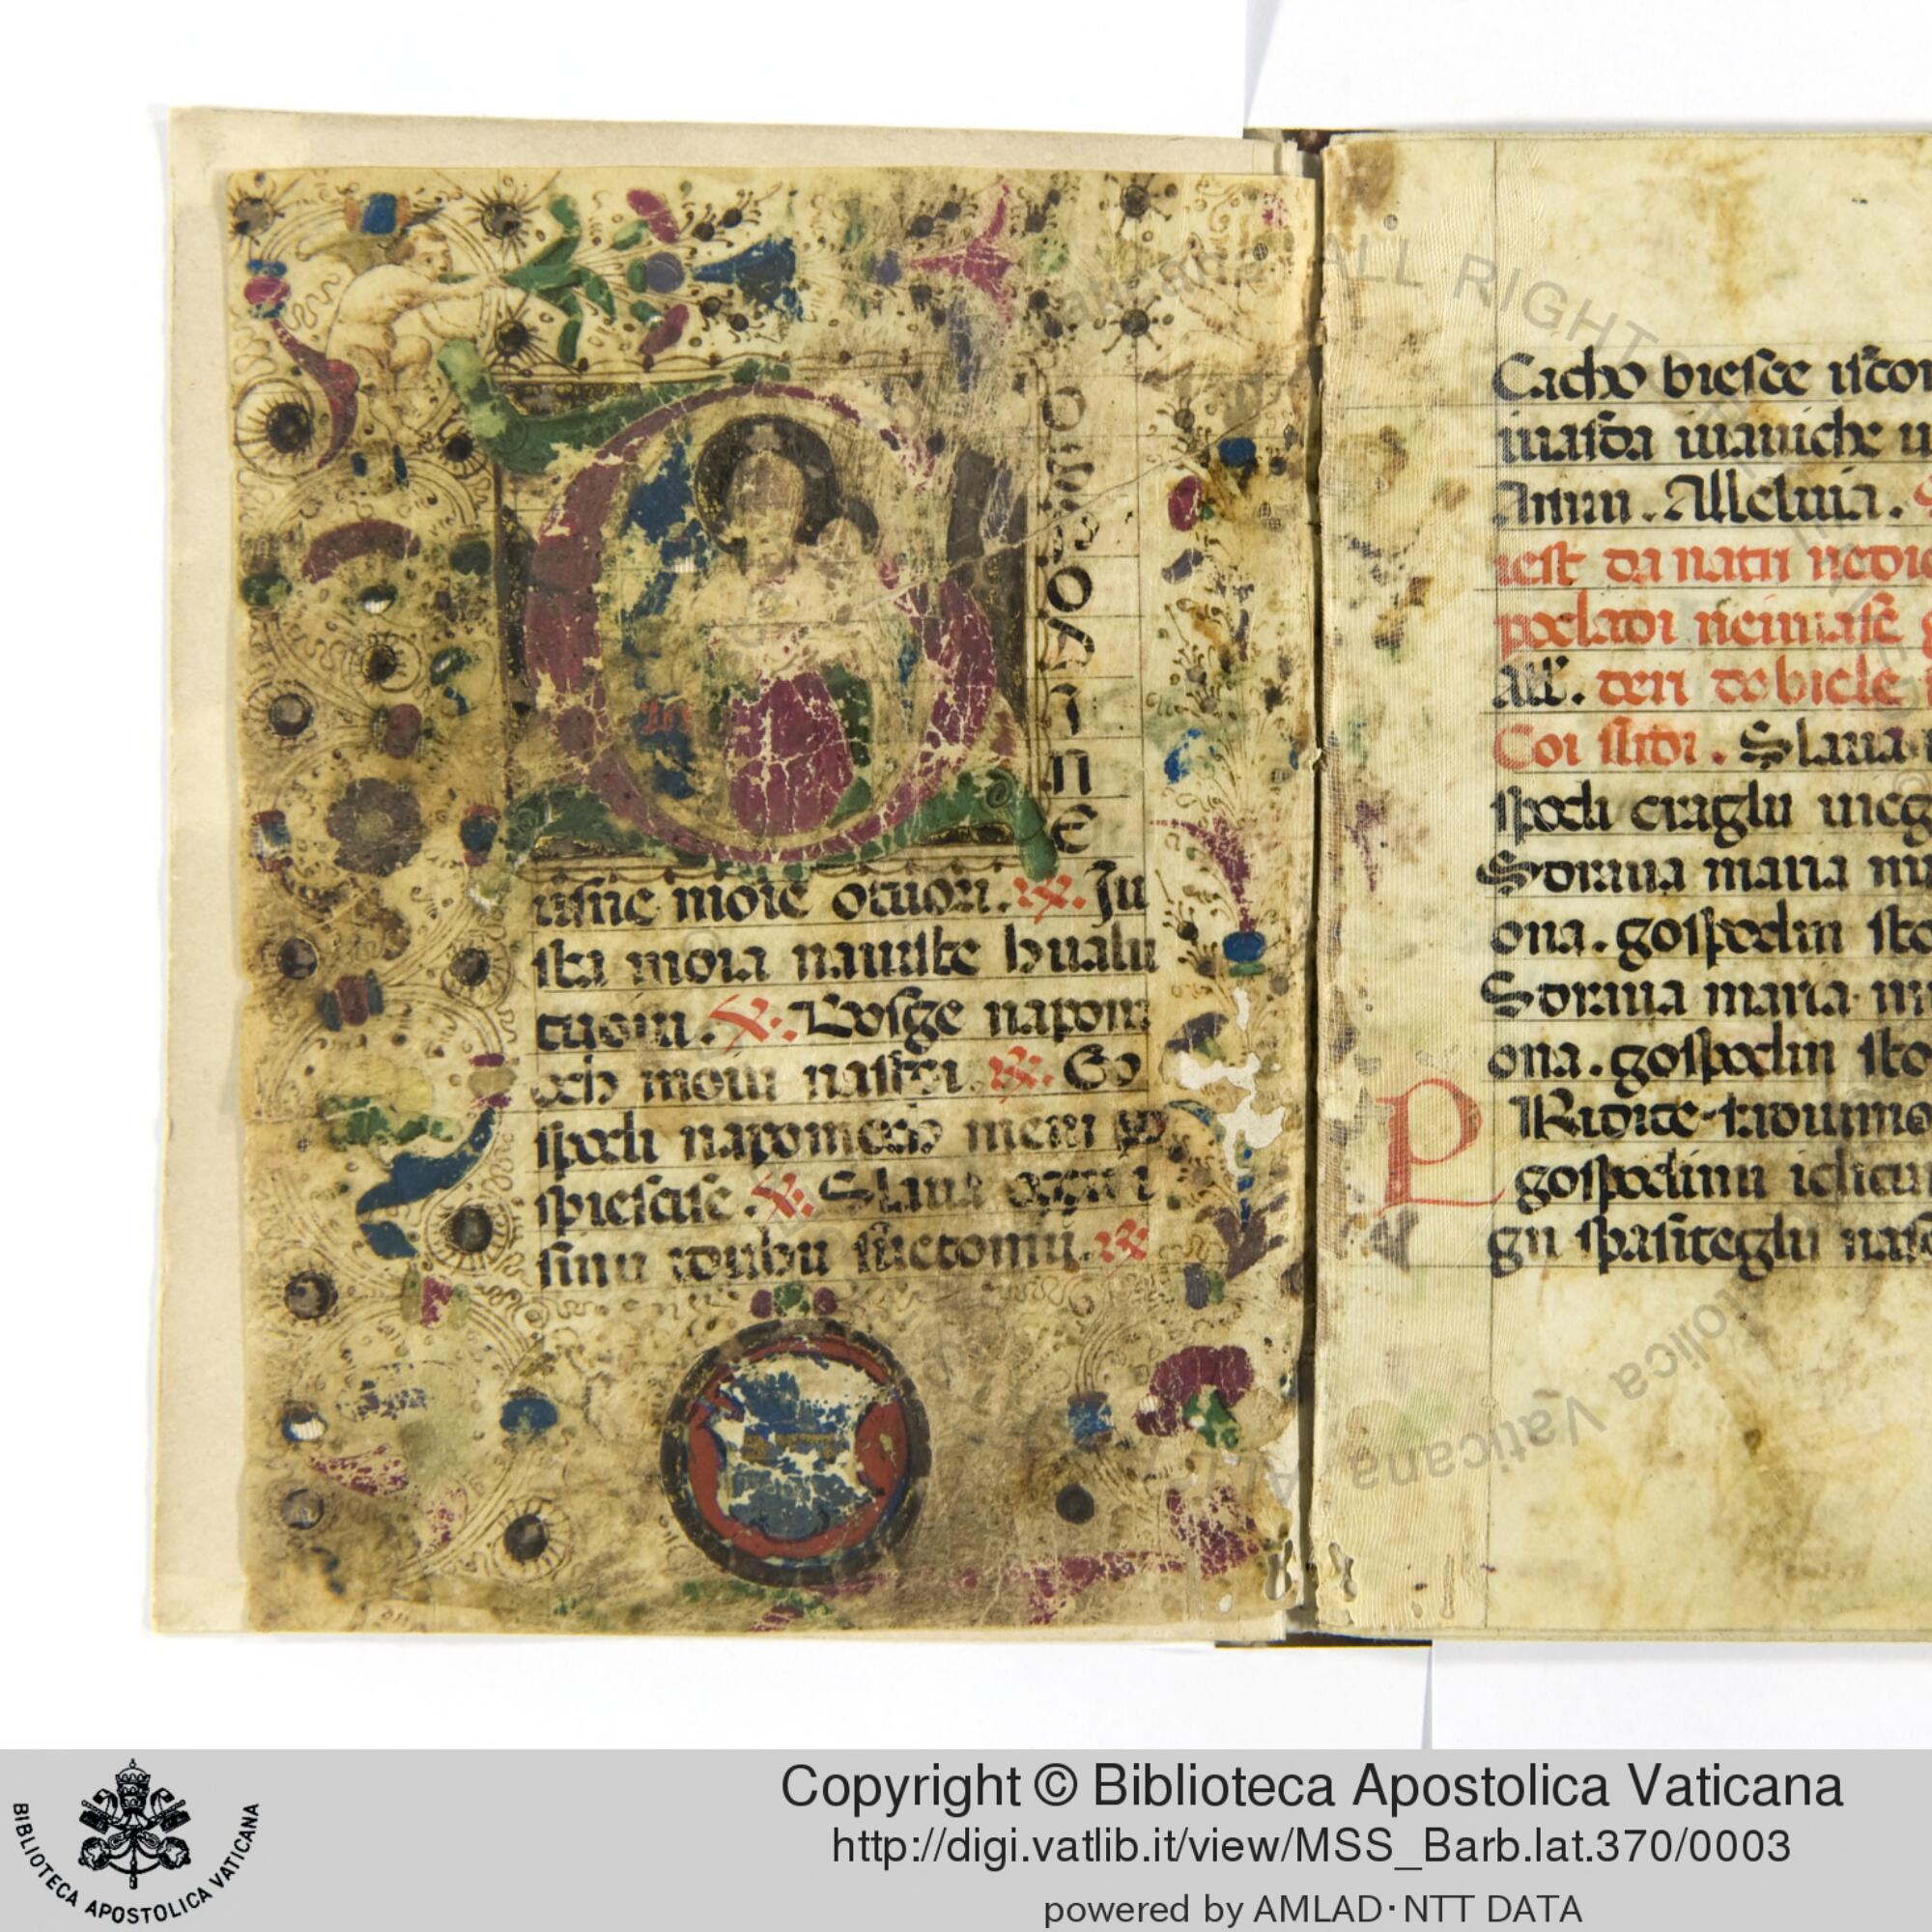 O
S
P
O
D
I
N
E
usne moie otuori. Ju
sta moia nauiste hualu
tuoiu. Bosge napom
och moiu nastoi. Go
spodi napomoch meni po
spiescise. Slaua
sinu duhu suetomu.
Cacho biesce iscon
uasda uauiche u
Amin. Alleluia. S
iest da natii nedie
pokladi neiuase
all'. deri do biele
Coi slidi. Slaua
spodi craglu uieg
Sdraua maria mi
ona. gospodin sto
Sdraua maria mi
ona. gospodin sto
PRidite
gospodinu
gu spasiteglu nas
ALL RIGHT
Apostolica Vaticana
BIBLIOTECA APOSTOLICA VATICANA
Copyright © Biblioteca Apostolica Vaticana
http://digi.vatlib.it/view/MSS_Barb.lat.370/0003
powered by AMLAD·NTT DATA